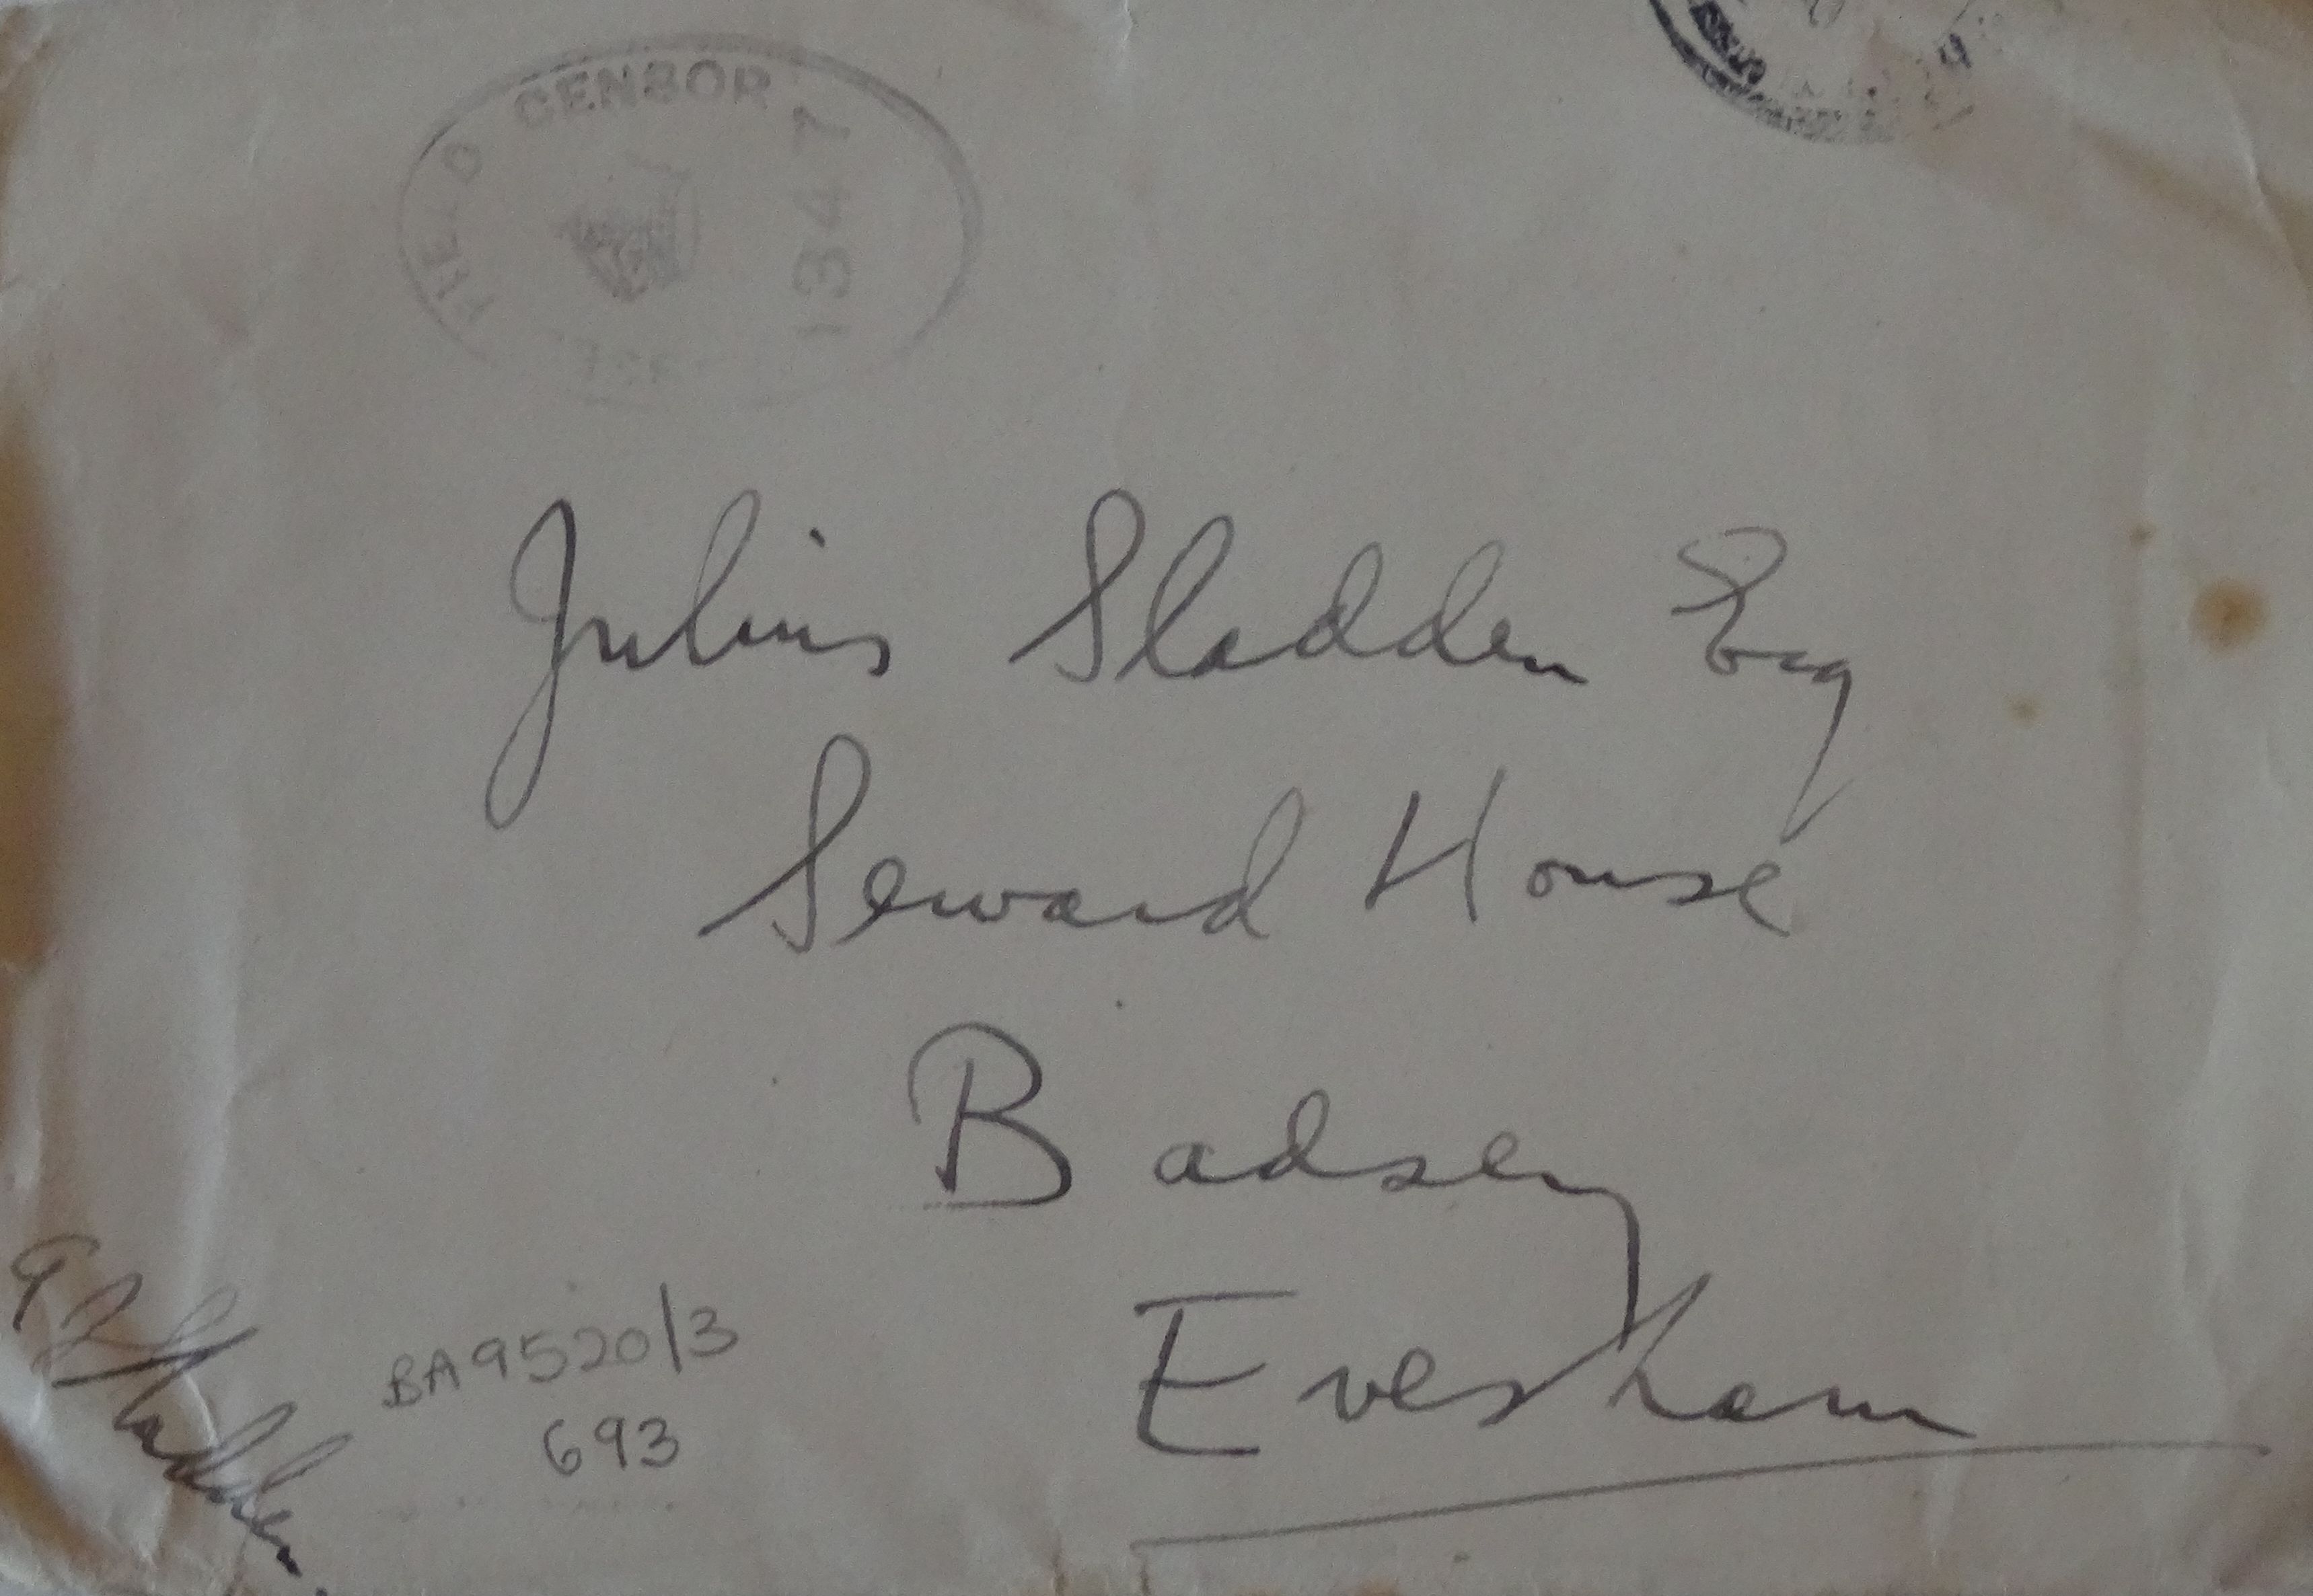 FIELD CENSOR
1347
Julius Sladden Esq
Seward House
Badsey
Evesham
Sladden
BA9520/3
693